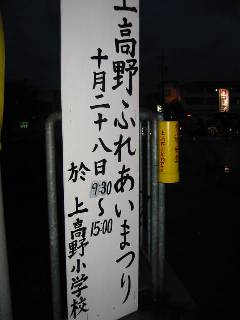 上高野ふれあいまつり
十月二十八日
9:30
〜
15:00
於 上高野小学校